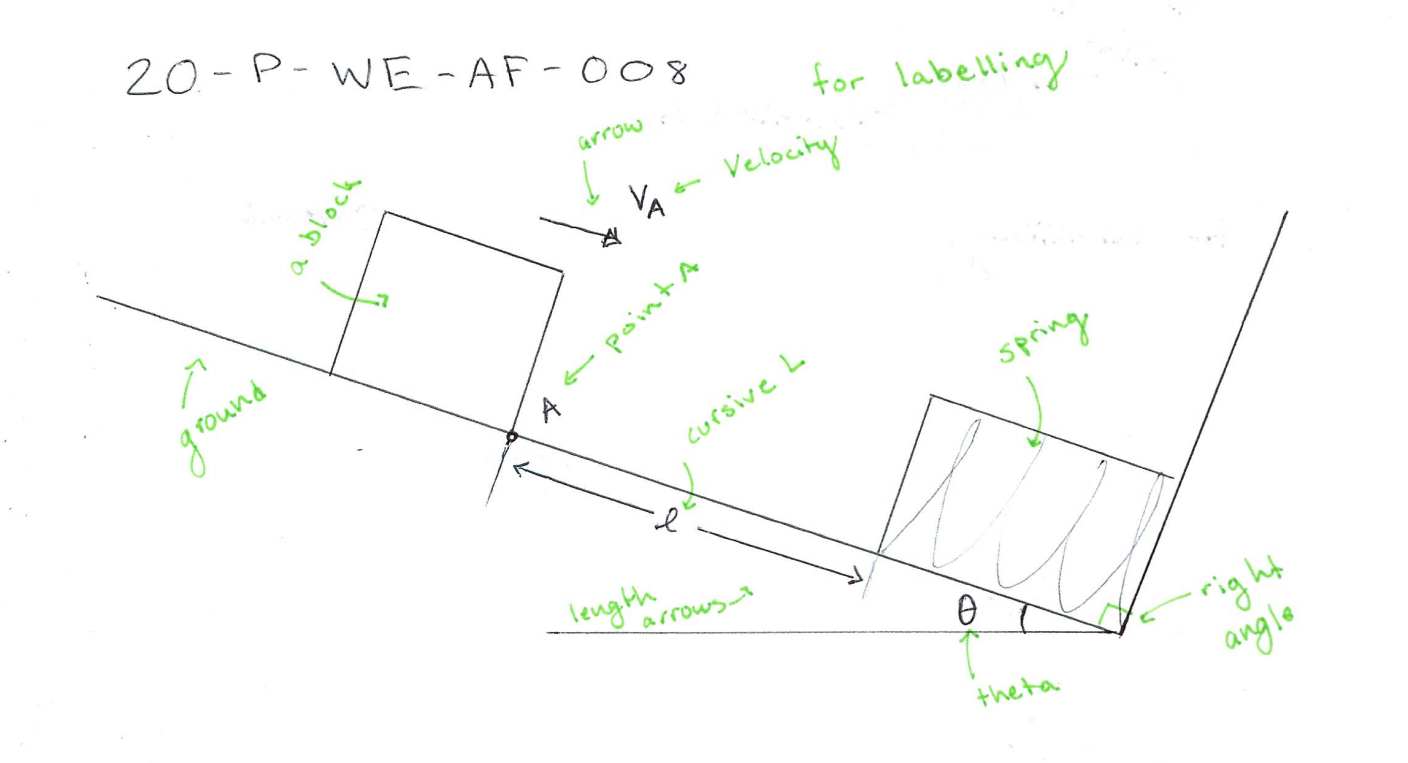 20-P-WE-AF-008
for labelling
arrow
VA
Velocity
a block
point A
A
spring
ground
cursive L
ℓ
length
arrows
θ
theta
right
angle